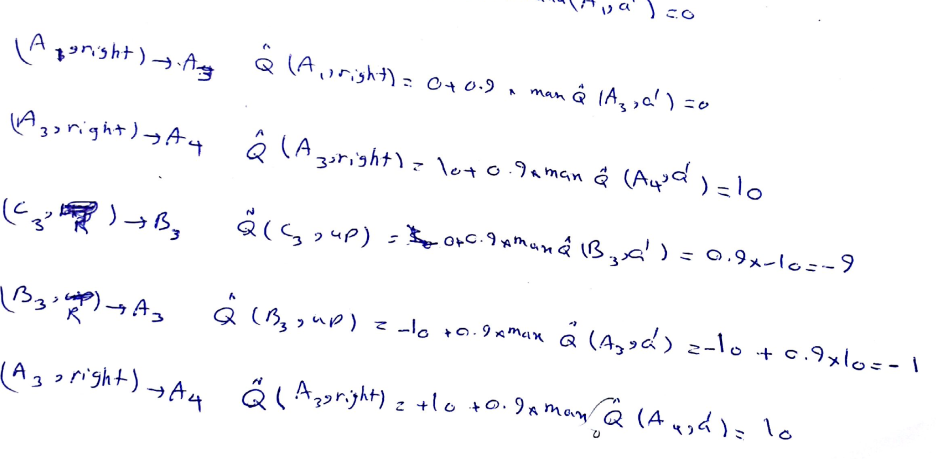 (A₁, a') = 0
(A, right) → A₃ Q̂ (A₁, right) = 0 + 0.9 × man Q̂ (A₃, a') = 0
(A₃, right) → A₄ Q̂ (A₃, right) = 10 + 0.9 × man Q̂ (A₄, a') = 10
(C₃, R) → B₃ Q̂ (C₃, up) = 0 + 0.9 × man Q̂ (B₃, a') = 0.9 × -10 = -9
(B₃, R) → A₃ Q̂ (B₃, up) = -10 + 0.9 × max Q̂ (A₃, a') = -10 + 0.9 × 10 = -1
(A₃, right) → A₄ Q̂ (A₃, right) = +10 + 0.9 × man Q̂ (A₄, a') = 10